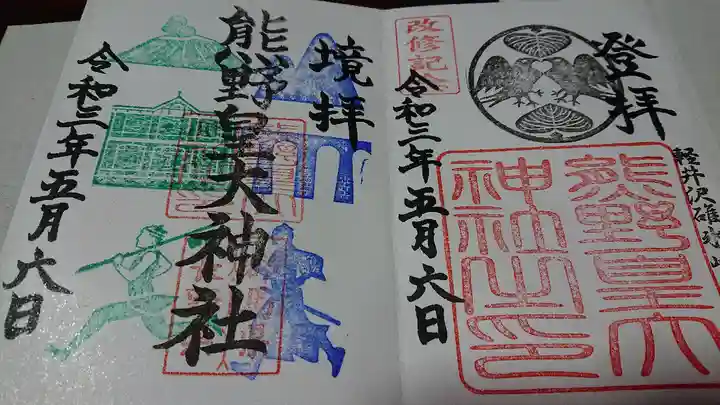 登拝
改修記念
軽井沢
熊野皇大
神社之印
令和三年五月六日
境拝
熊野皇大神社
令和三年五月六日